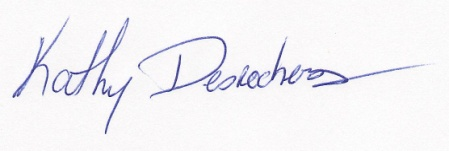 Kathy Desrochers